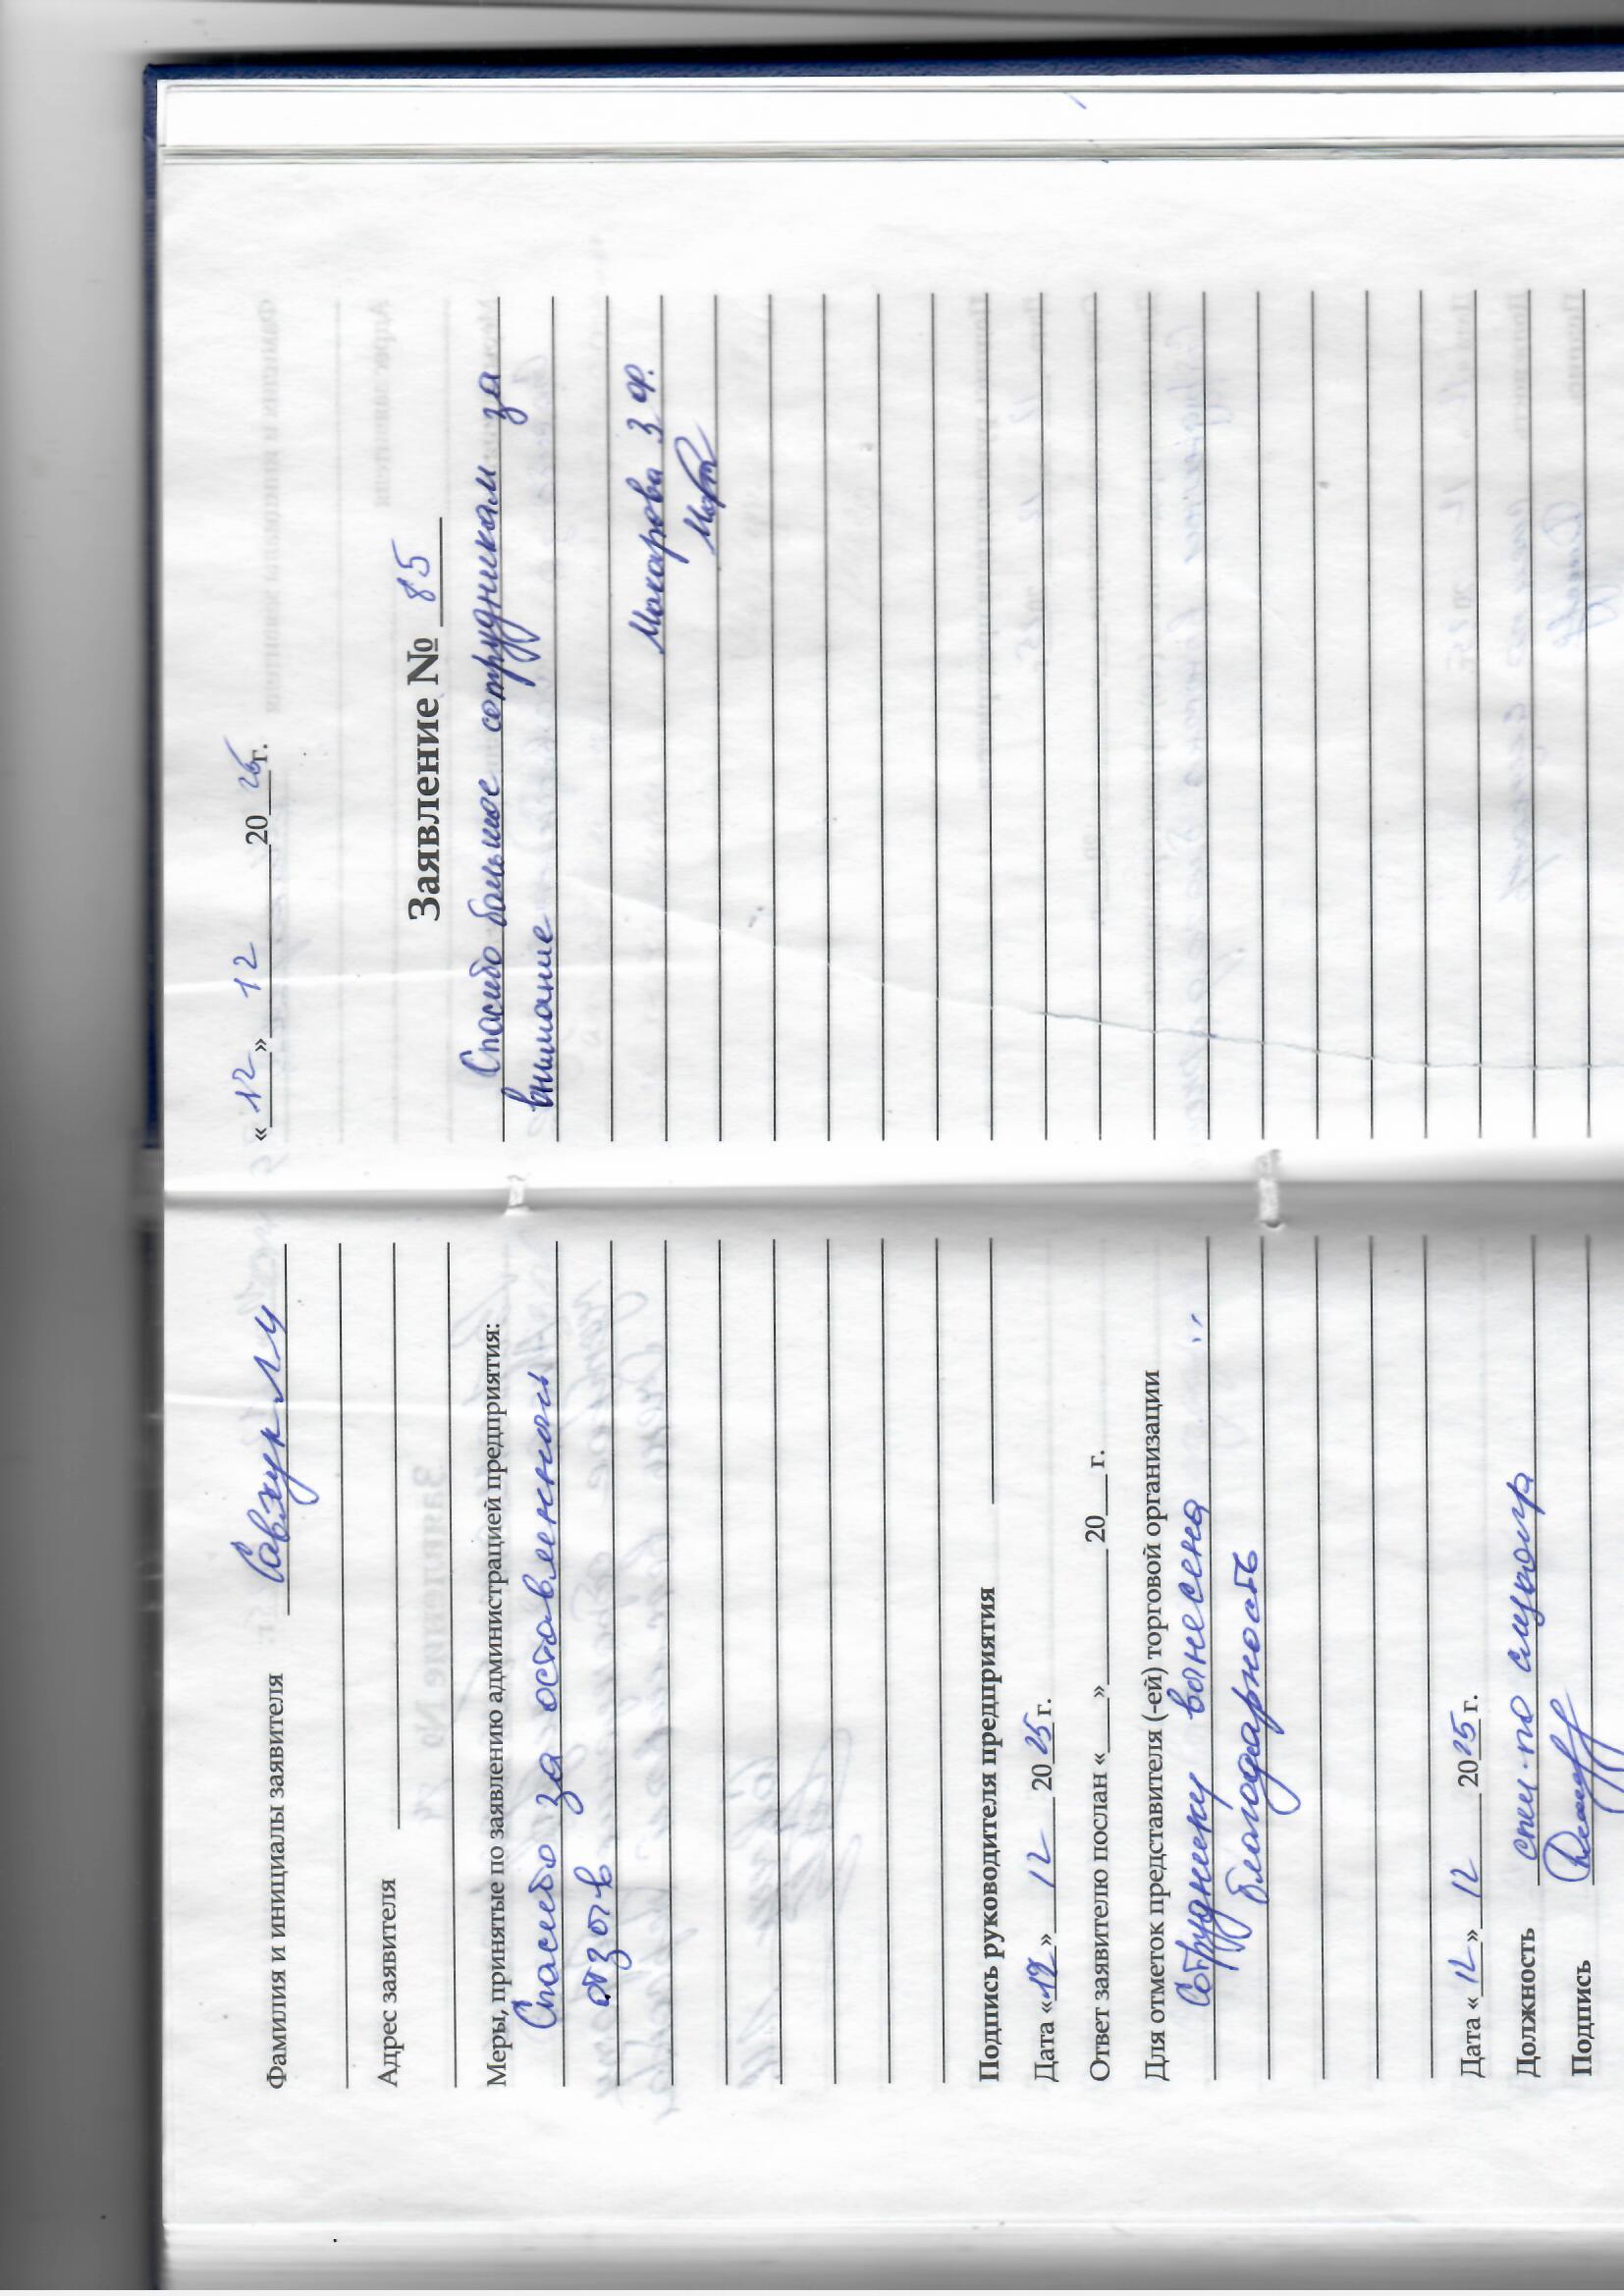 Фамилия и инициалы заявителя Савчук Л И
Адрес заявителя
Меры, принятые по заявлению администрацией предприятия:
Спасибо за оставленный
отзыв
Подпись руководителя предприятия
Дата «12» 12 2025 г.
Ответ заявителю послан «__» ______ 20__ г.
Для отметок представителя (-ей) торговой организации
Сотруднику вынесена
благодарность
Дата «12» 12 2025 г.
Должность спец. по
Подпись
«12» 12 2025 г.
Заявление № 85
Спасибо большое сотрудникам за
внимание
Макарова З Ф.